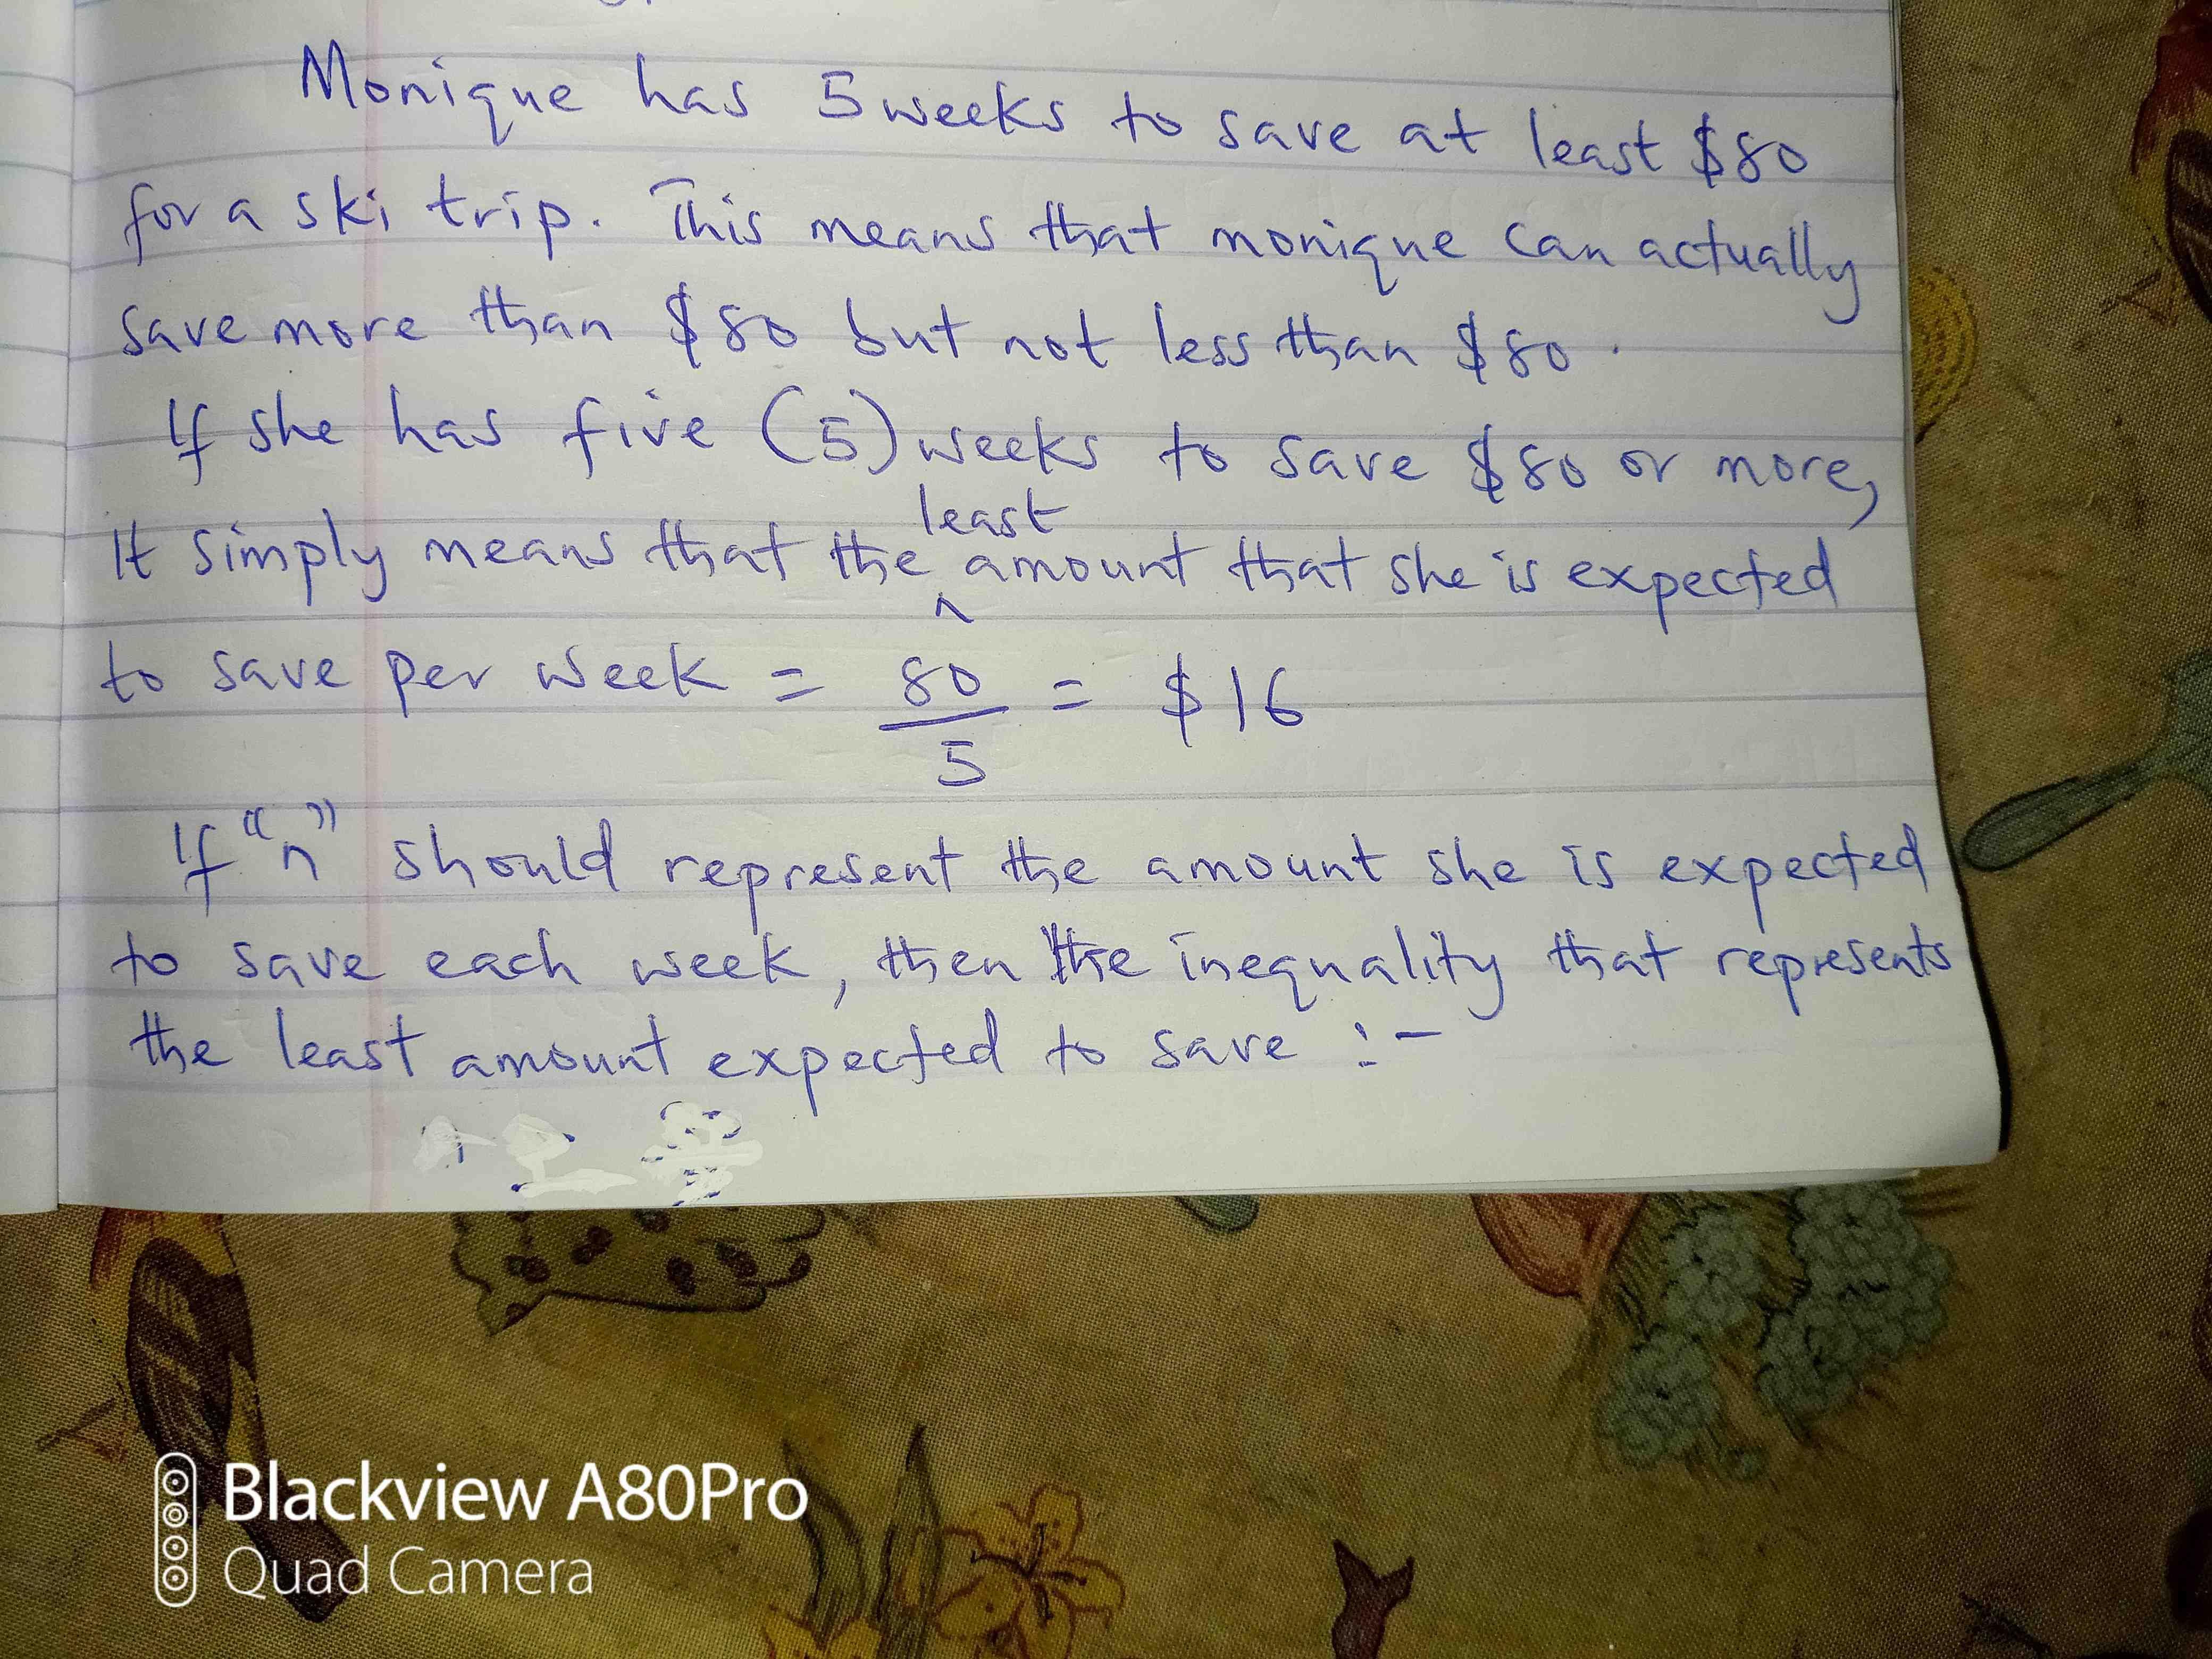 Monique has 5 weeks to save at least $80
for a ski trip. This means that monique can actually
save more than $80 but not less than $80.
If she has five (5) weeks to save $80 or more,
least
It simply means that the ^ amount that she is expected
to save per week = 80/5 = $16
If "n" should represent the amount she is expected
to save each week, then the inequality that represents
the least amount expected to save :-
Blackview A80Pro
Quad Camera